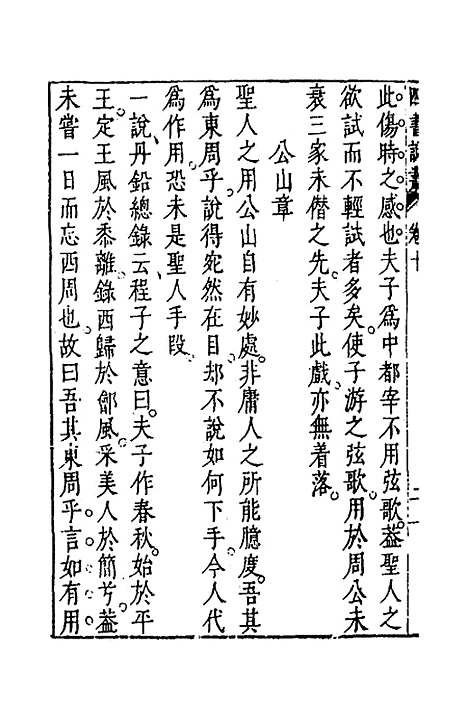 此傷時之感也夫子爲中都宰不用弦歌葢聖人之
欲試而不輕試者多矣使子游之弦歌用於周公未
衰三家未僭之先夫子此戲亦無着落
公山章
聖人之用公山自有妙處非庸人之所能臆度吾其
爲東周乎說得宛然在目却不說如何下手今人代
爲作用恐未是聖人手段
一說丹鉛總錄云程子之意曰夫子作春秋始於平
王定王風於黍離錄西歸於鄶風采美人於簡兮葢
未嘗一日而忘西周也故曰吾其東周乎言如有用